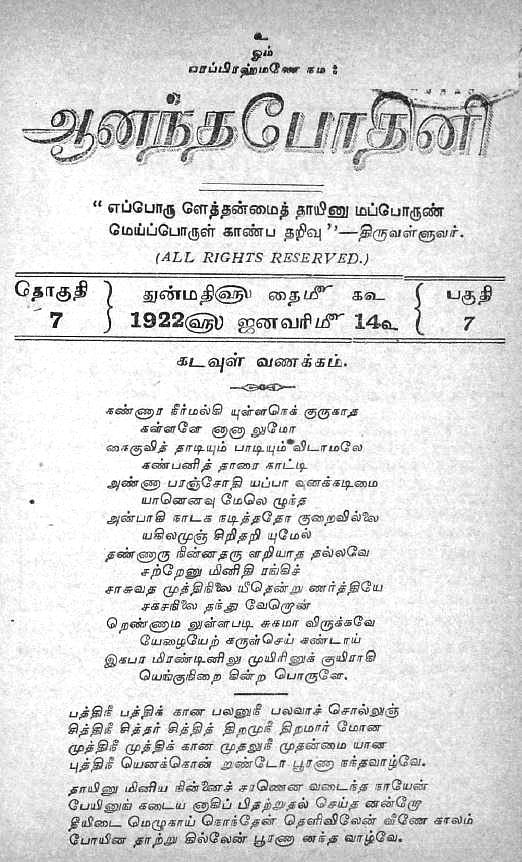 உ
ஓம்
பரப்பிரஹ்மணே நம :
ஆனந்தபோதினி
“ எப்பொரு ளெத்தன்மைத் தாயினு மப்பொருண்
மெய்ப்பொருள் காண்ப தறிவு ”—திருவள்ளுவர்.
(ALL RIGHTS RESERVED.)
தொகுதி 7 } துன்மதி௵ தை௴ க௳ { பகுதி 7
1922௵ ஜனவரி௴ 14௳
கடவுள் வணக்கம்.
கண்ணார நீர்மல்கி யுள்ளநெக் குருகாத
கள்ளனே னானா லுமோ
கைகுவித் தாடியும் பாடியும் விடாமலே
கண்பனித் தாரை காட்டி
அண்ணா பரஞ்சோதி யப்பா வுனக்கடிமை
யானெனவு மேலெ ழுந்த
அன்பாகி நாடக நடித்ததோ குறைவில்லை
யகிலமுஞ் சிறிதறி யுமேல்
தண்ணாரு நின்னதரு ளறியாத தல்லவே
சற்றேனு மினிதி ரங்கிச்
சாசுவத முத்திநிலை யீதென்று ணர்த்தியே
சகசநிலை தந்து வேறொன்
றெண்ணாம லுள்ளபடி சுகமா விருக்கவே
யேழையேற் கருள்செய் கண்டாய்
இகபர மிரண்டினிலு முயிரினுக் குயிராகி
யெங்குநிறை கின்ற பொருளே.
பத்திநீ பத்திக் கான பலனுநீ பலவாச் சொல்லுஞ்
சித்திநீ சித்தர் சித்தித் திறமுநீ திறமார் மோன
முத்திநீ முத்திக் கான முதலுநீ முதன்மை யான
புத்திநீ யெனக்கொன் றுண்டோ பூரணா நந்தவாழ்வே.
தாயினு மினிய நின்னைச் சரணென வடைந்த நாயேன்
பேயினுங் கடைய னாகிப் பிதற்றுதல் செய்த னன்றோ
தீயிடை மெழுகாய் நொந்தேன் தெளிவிலேன் வீணே காலம்
போயின தாற்று கில்லேன் பூரணா னந்த வாழ்வே.